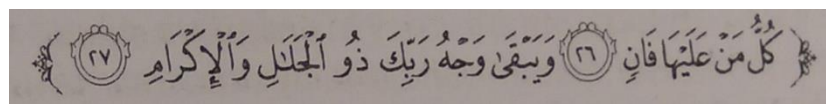 ﴿ كُلُّ مَنْ عَلَيْهَا فَانٍ ۝٢٦ وَيَبْقَىٰ وَجْهُ رَبِّكَ ذُو ٱلْجَلَٰلِ وَٱلْإِكْرَامِ ۝٢٧ ﴾